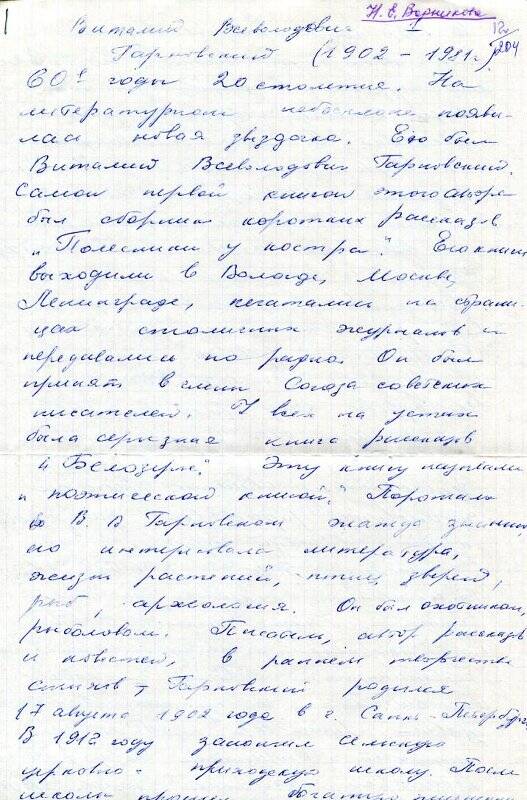 Н. С. Ворникова
1
Виталий Всеволодович
Гарновский (1902 - 1981 г.)
204
60е годы 20 столетие. На
литературном небосклоне появи-
лась новая звездочка. Его был
Виталий Всеволодович Гарновский.
Самой первой книгой этого автора
был сборник коротких рассказов
„Полесники у костра". Его книги
выходили в Вологде, Москве,
Ленинграде, печатались на страни-
цах столичных журналов и
передавались по радио. Он был
принят в члены Союза советских
писателей. У всех на устах
была серьезная книга рассказов
„Белозерье". Эту книгу называли
„поэтической книгой". Поражала
в В. В Гарновском жажда знаний,
его интересовала литература,
жизнь растений, птиц, зверей,
рыб, археология. Он был охотником,
рыболовом. Писатель, автор рассказов
и повестей, в раннем творчестве
стихов, Гарновский родился
17 августа 1902 года в г. Санкт-Петербург
В 1912 году закончил семейную
церковно-приходскую школу. После
школы